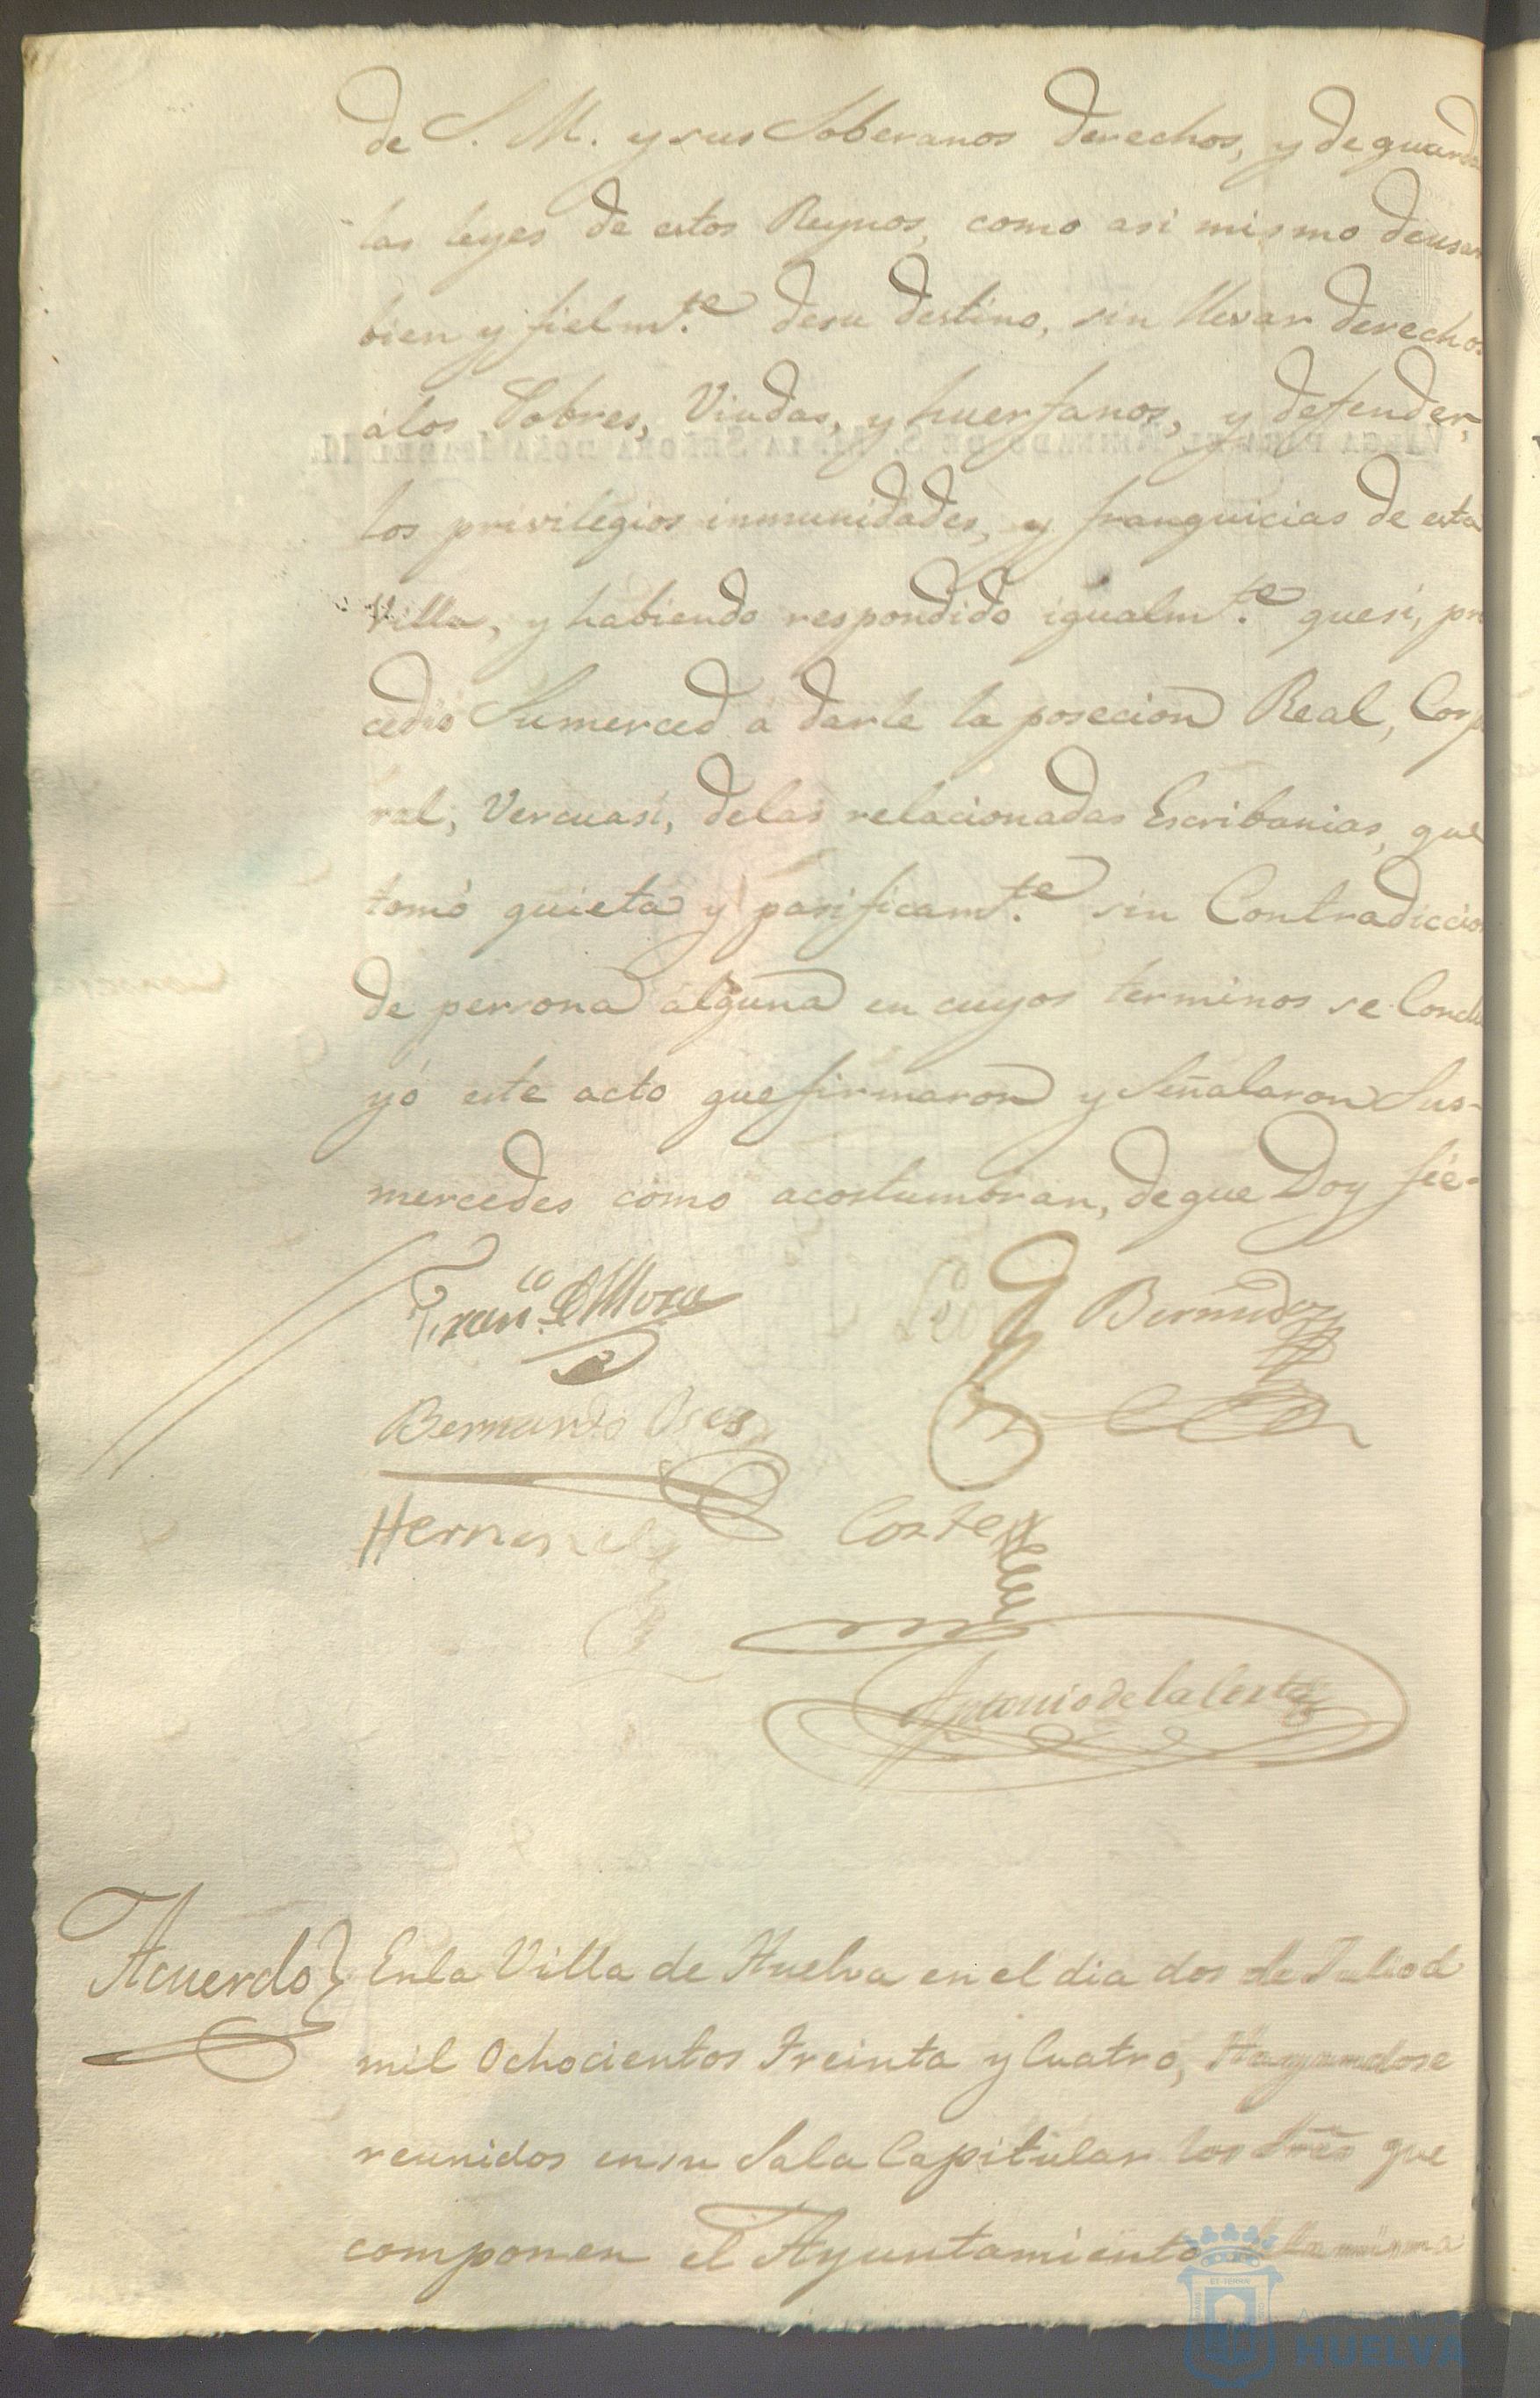 de S. M. y sus Soberanos derechos, y de guarda
las leyes de estos Reynos, como asi mismo deusar
bien y fielm.te desu destino, sin llevar derechos
álos Pobres, Viudas, y huerfanos, y defender,
los privilegios inmunidades, y franquicias de esta
Villa, y habiendo respondido igualm.te quesi, pro
cedió Sumerced á darle la posecion Real, Corpo
ral, Vercuasi, delas relacionadas Escribanias, que
tomó quieta y pasificam.te sin Contradiccion
de persona alguna en cuyos terminos se Conclu
yó este acto que firmaron y Señalaron Sus-
mercedes como acostumbran, de que Doy fée-
Fran.co D Mora
Bermudez
Bernardo Oses
Hernandez
Cortes
Antonio de la Corte
Acuerdo} Enla Villa de Huelva en el dia dos de Julio d
mil Ochocientos Treinta y Cuatro, Hayandose
reunidos en su Sala Capitular los Sres que
componen el Ayuntamiento de la misma
HUELVA